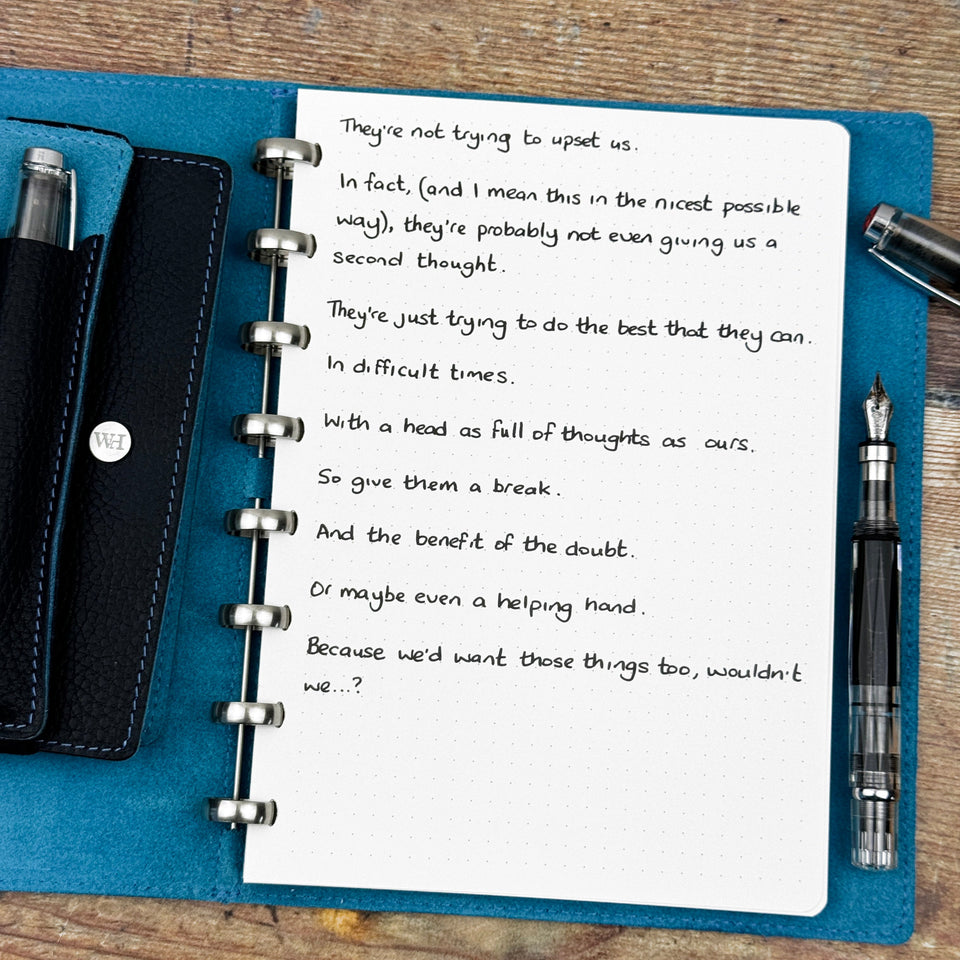 They're not trying to upset us.
In fact, (and I mean this in the nicest possible
way), they're probably not even giving us a
second thought.
They're just trying to do the best that they can.
In difficult times.
With a head as full of thoughts as ours.
So give them a break.
And the benefit of the doubt.
Or maybe even a helping hand.
Because we'd want those things too, wouldn't
we...?
WH